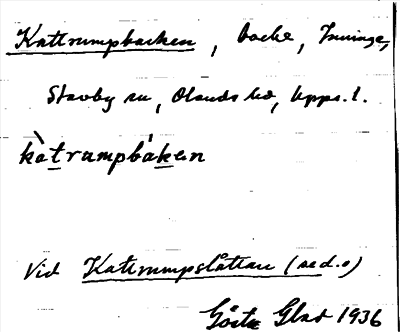 Kattrumpbacken, backe, Inninge,
Stavby sn, Olands hd, Upps. l.
kàtrumpbákan
Vid Kattrumpslåttan (se d. o)
Gösta Glad 1936